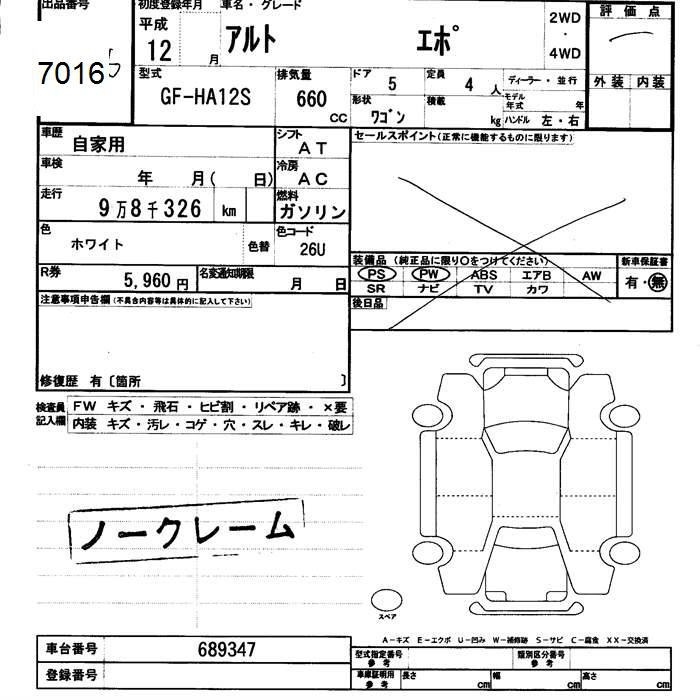 出品番号 初度登録年月 車名・グレード 評価点
7016 平成 12 月 アルト エポ 2WD・4WD
型式 排気量 ドア 定員 ディーラー・並行 外装 内装
GF-HA12S 660 cc 5 4 人 モデル年式 年
形状 ワゴン 積載 kg ハンドル 左・右
車歴 自家用 シフト AT セールスポイント(正常に機能するものに限ります)
車検 年 月( 日) 冷房 AC
走行 9万8千326 km 燃料 ガソリン
色 ホワイト 色替 色コード 26U
装備品 (純正品に限り○をつけてください) 新車保証書
R券 5,960円 名変通知期限 月 日 PS PW ABS エアB AW 有・無
SR ナビ TV カワ
注意事項申告欄(不具合内容等は具体的に記入して下さい) 後日品
修復歴 有〔箇所 〕
検査員記入欄 FW キズ・飛石・ヒビ割・リペア跡・×要
内装 キズ・汚レ・コゲ・穴・スレ・キレ・破レ
ノークレーム
スペア
A-キズ E-エクボ U-凹み W-補修跡 S-サビ C-腐食 XX-交換済
車台番号 689347 型式指定番号 参考 類別区分番号 参考
登録番号 車庫証明用 参考 長さ cm 幅 cm 高さ cm